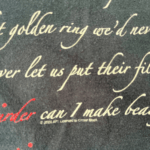 t golden ring we'd neve
ver let us put their fil
arder can I make beau